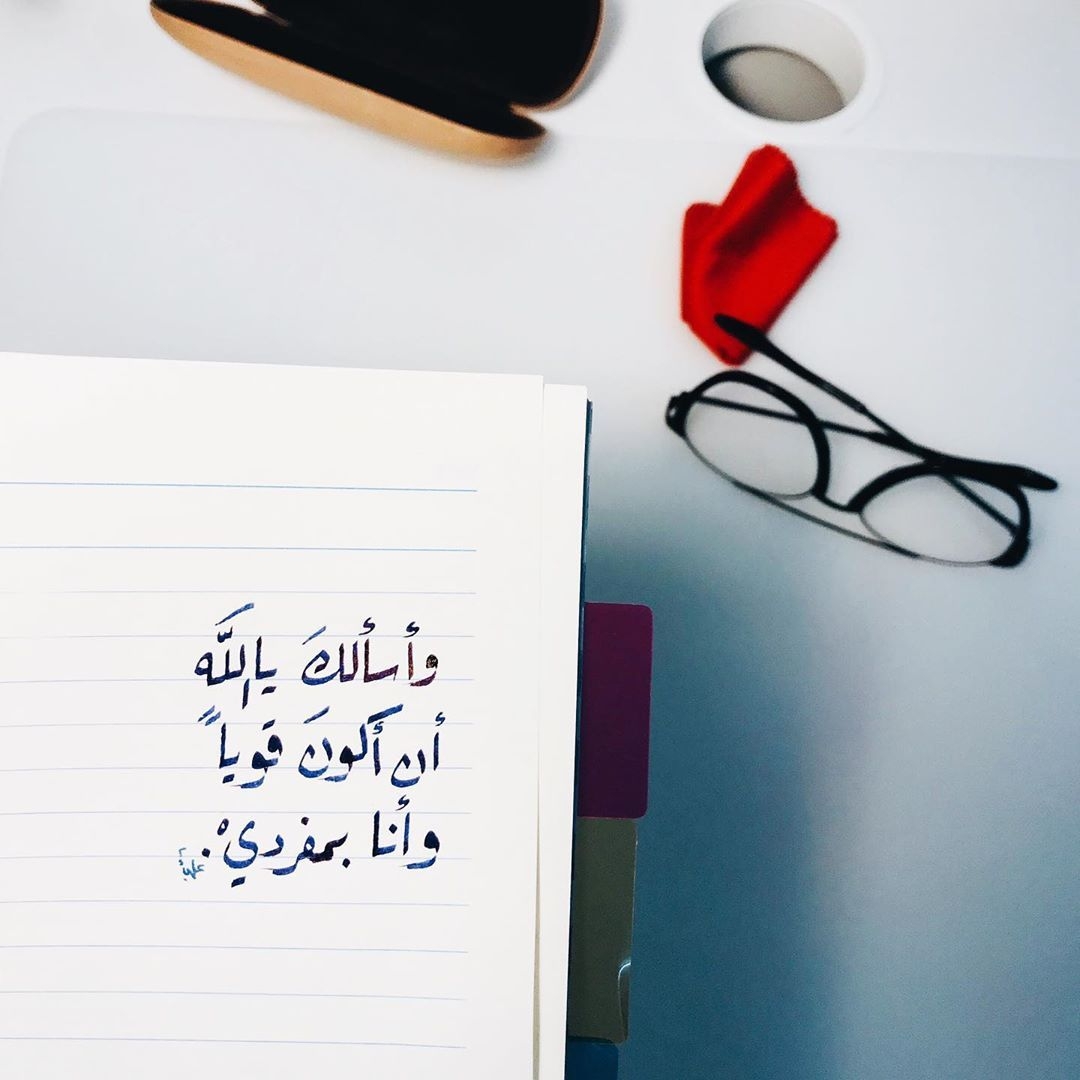 وأسألكَ ياللَّه
أن أكونَ قوياً
وأنا بمفرديْ.